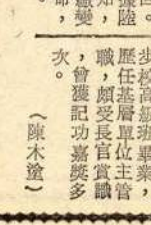 步校高級班畢業，
歷任基層單位主管
職，頗受長官賞識
，曾獲記功嘉獎多
次。
（陳木塗）